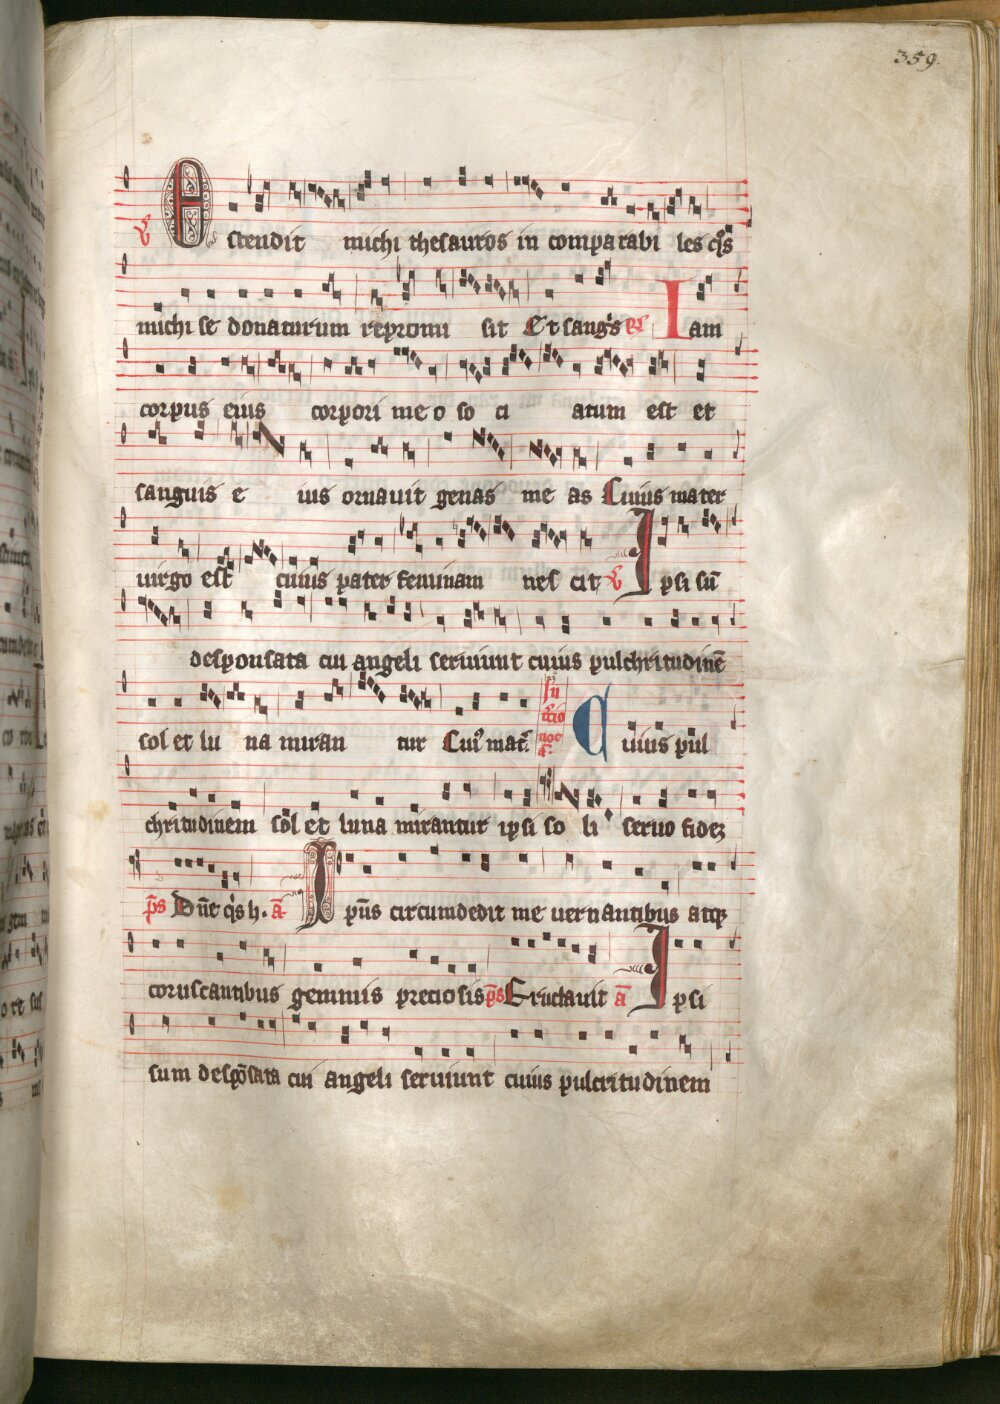 359.
℣ Ostendit michi thesauros in comparabi les q̉s
michi se donaturum repromi sit Et sang̉s R̃ Iam
corpus eius corpori me o so ci atum est et
sanguis e ius ornauit genas me as Cuius mater
uirgo est cuius pater feminam nes cit ℣ Ipsi sũ
desponsata cui angeli seruiunt cuius pulchritudinẽ
sol et lu na miran tur Cui9 mat̃.
Cuius pul
chritudinem sol et luna mirantur ipsi so li seruo fidez
p̃s Dñe q̉s h. ã Ip̃us circumdedit me uernantibus atqz
coruscantibus gemmis preciosis p̃s Eructauit ã Ipsi
sum despõsata cui angeli seruiunt cuius pulcritudinem